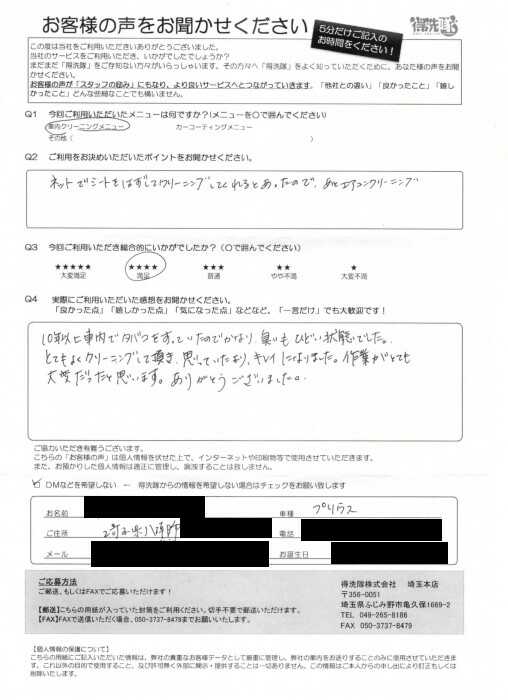 お客様の声をお聞かせください
5分だけご記入の
お時間をください！
得洗隊
この度は当社をご利用いただきありがとうございました。
当社のサービスをご利用いただき、いかがでしたでしょうか？
まだまだ「得洗隊」をご存知ない方々がいらっしゃいます。その方々へ「得洗隊」をよく知っていただくために、あなた様の声をお聞かせください。
お客様の声が「スタッフの励み」にもなり、より良いサービスへとつながっていきます。「他社との違い」「良かったこと」「嬉しかったこと」どんな些細なことでも構いません。
Q1 今回ご利用いただいたメニューは何ですか?(メニューを○で囲んでください)
車内クリーニングメニュー カーコーティングメニュー
その他（ ）
Q2 ご利用をお決めいただいたポイントをお聞かせください。
ネットでシートをはずしてクリーニングしてくれるとあったので、あとエアコンクリーニング
Q3 今回ご利用いただき総合的にいかがでしたか？（○で囲んでください）
★★★★★ ★★★★ ★★★ ★★ ★
大変満足 満足 普通 やや不満 大変不満
Q4 実際にご利用いただいた感想をお聞かせください。
「良かった点」「嬉しかった点」「気になった点」などなど。「一言だけ」でも大歓迎です！
10年以上車内でタバコをすっていたのでかなり臭いもひどい状態でした。
とてもよくクリーニングして頂き、思っていたより、キレイになりました。作業がとても
大変だったと思います。ありがとうございました。
ご協力いただき有難うございます。
こちらの「お客様の声」は個人情報を伏せた上で、インターネットや印刷物等で使用させていただきます。
また、お預かりした個人情報は適正に管理し、漏洩することは致しません。
DMなどを希望しない ← 得洗隊からの情報を希望しない場合はチェックをお願い致します
お名前 車種 プリウス
ご住所 埼玉県八潮市 電話
メール お誕生日
ご応募方法
ご郵送、もしくはFAXでご応募いただけます！
【郵送】こちらの用紙が入っていた封筒をご利用ください。切手不要で郵送いただけます。
【FAX】FAXで送信いただく場合、050-3737-8479までお願いいたします。
得洗隊株式会社 埼玉本店
〒356-0051
埼玉県ふじみ野市亀久保1669-2
TEL 049-265-8186
FAX 050-3737-8479
【個人情報の保護について】
こちらの用紙にご記入いただいた情報は、弊社の貴重なお客様データとして厳重に管理し、弊社の案内をお送りすることのみに使用させていただきます。これ以外の目的で使用すること、及び許可無く外部に開示・提供することは一切ありません。この情報はご本人からの申し出により訂正もしくは削除いたします。